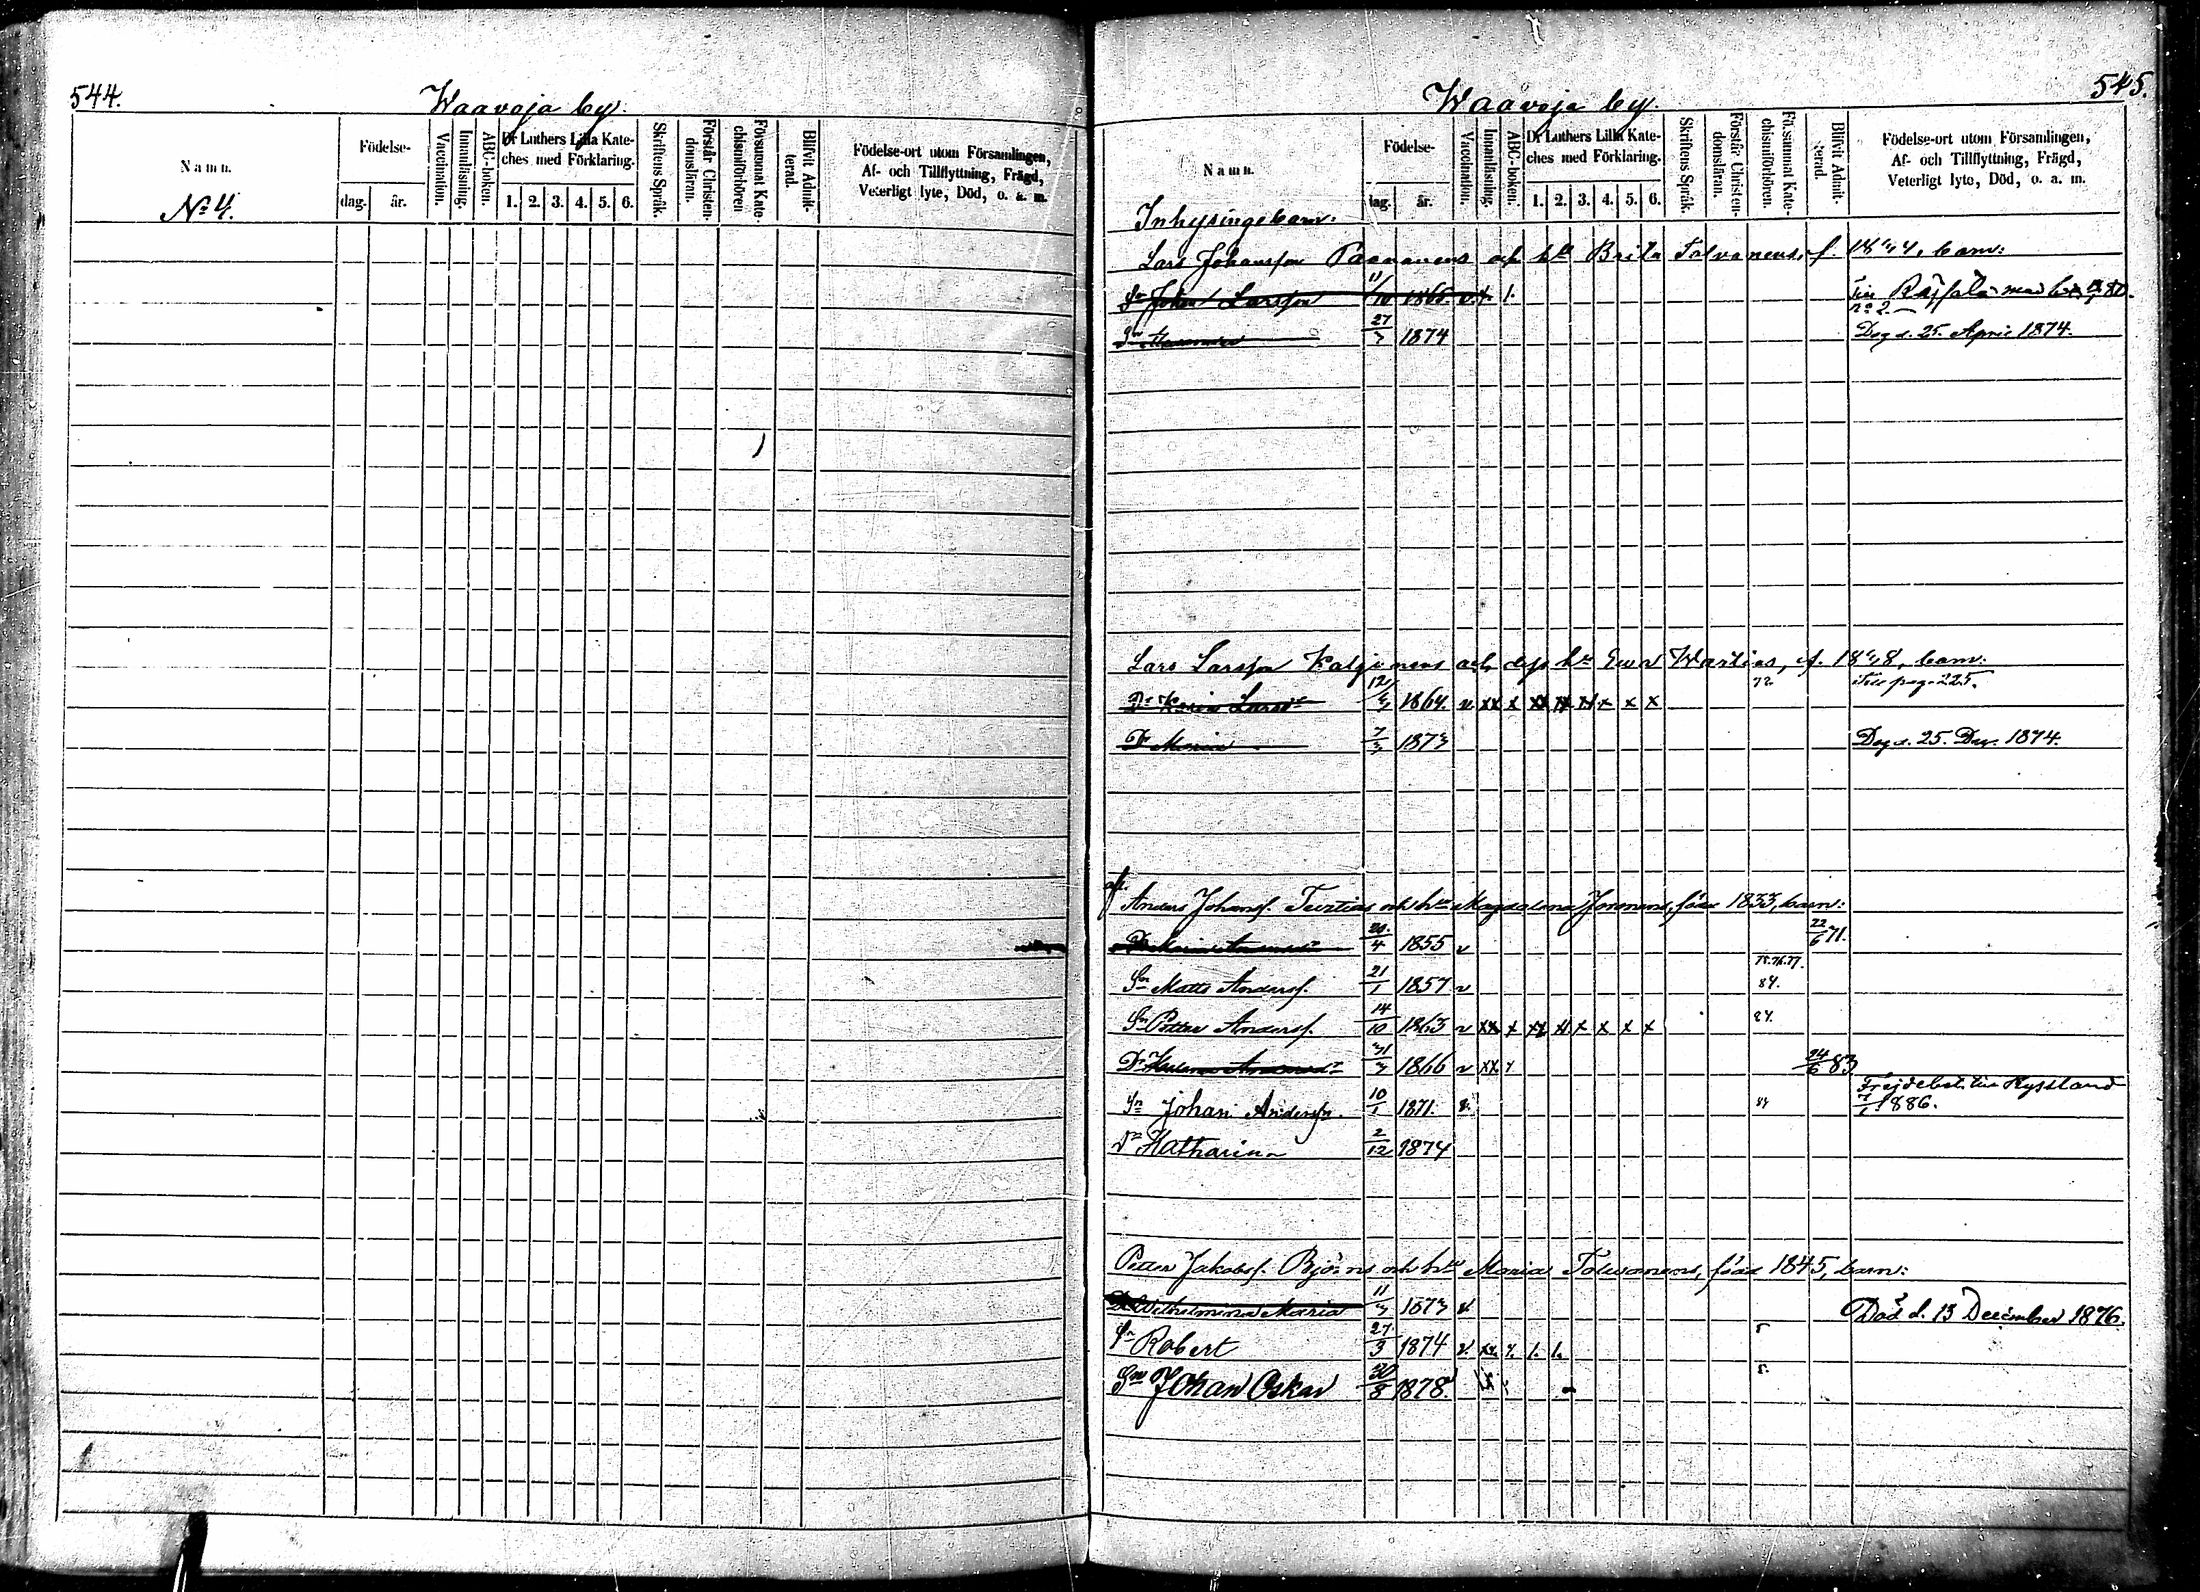 544.
Waavoja by.
Namn.
Födelse-
dag. år.
Vaccination.
Innanläsning.
ABC-boken.
Dr Luthers Lilla Kate-
ches med Förklaring.
1. 2. 3. 4. 5. 6.
Skriftens Språk.
Förstår Christen-
domsläran.
Försummat Kate-
chismiförhören
Blifvit Admit-
terad.
Födelse-ort utom Församlingen,
Af- och Tillflyttning, Frägd,
Veterligt lyte, Död, o. a. m.
No 4.
545.
Waavoja by.
Namn.
Födelse-
dag. år.
Vaccination.
Innanläsning.
ABC-boken.
Dr Luthers Lilla Kate-
ches med Förklaring.
1. 2. 3. 4. 5. 6.
Skriftens Språk.
Förstår Christen-
domsläran.
Försummat Kate-
chismiförhören.
Blifvit Admit-
terad.
Födelse-ort utom Församlingen,
Af- och Tillflyttning, Frägd,
Veterligt lyte, Död, o. a. m.
Inhysingebarn:
Lars Johansson Paananens och h. Brita Tolvanens, f. barn:
Sn Johan Larsson 11/10 1865. v.
Sn 27/3 1874 Dog d. 25. April 1874.
Lars Larsson och h. Eva Wartias, f. barn:
72. Till pag. 225.
Dr Karin Larsdr 12/3 1864. v xx x xx xx xx x x x
Dr Maria 7/3 1873 Dog d. 25. Dec. 1874.
af.
Anders Johanss. Turtias och h. Magdalena Joronens, född 1833, barn:
Dr Maria Andersdr 20./4 1855 v 22/6 71.
75.76.77.
Sn Matts Anderss. 21/1 1857 v 84.
Sn Petter Anderss. 14/10 1863 v xx x xx xx x x x x 84.
Dr Helena Andersdr 31/3 1866 v xx x 24/6 83
Frejdebet. till Ryssland
Sn Johan Anderss. 10/1 1871. v. 84 1886.
Dr Katharina 2/12 1874
Petter Jakobss. Björns och h. Maria Tolvanens, född 1845, barn:
Dr Wilhelmina Maria 11/3 1873 v. Död d. 13 December 1876.
Sn Robert 27/3 1874 v. xx. x. 1. 1. 5
Sn Johan Oskar 20/8 1878. 5.